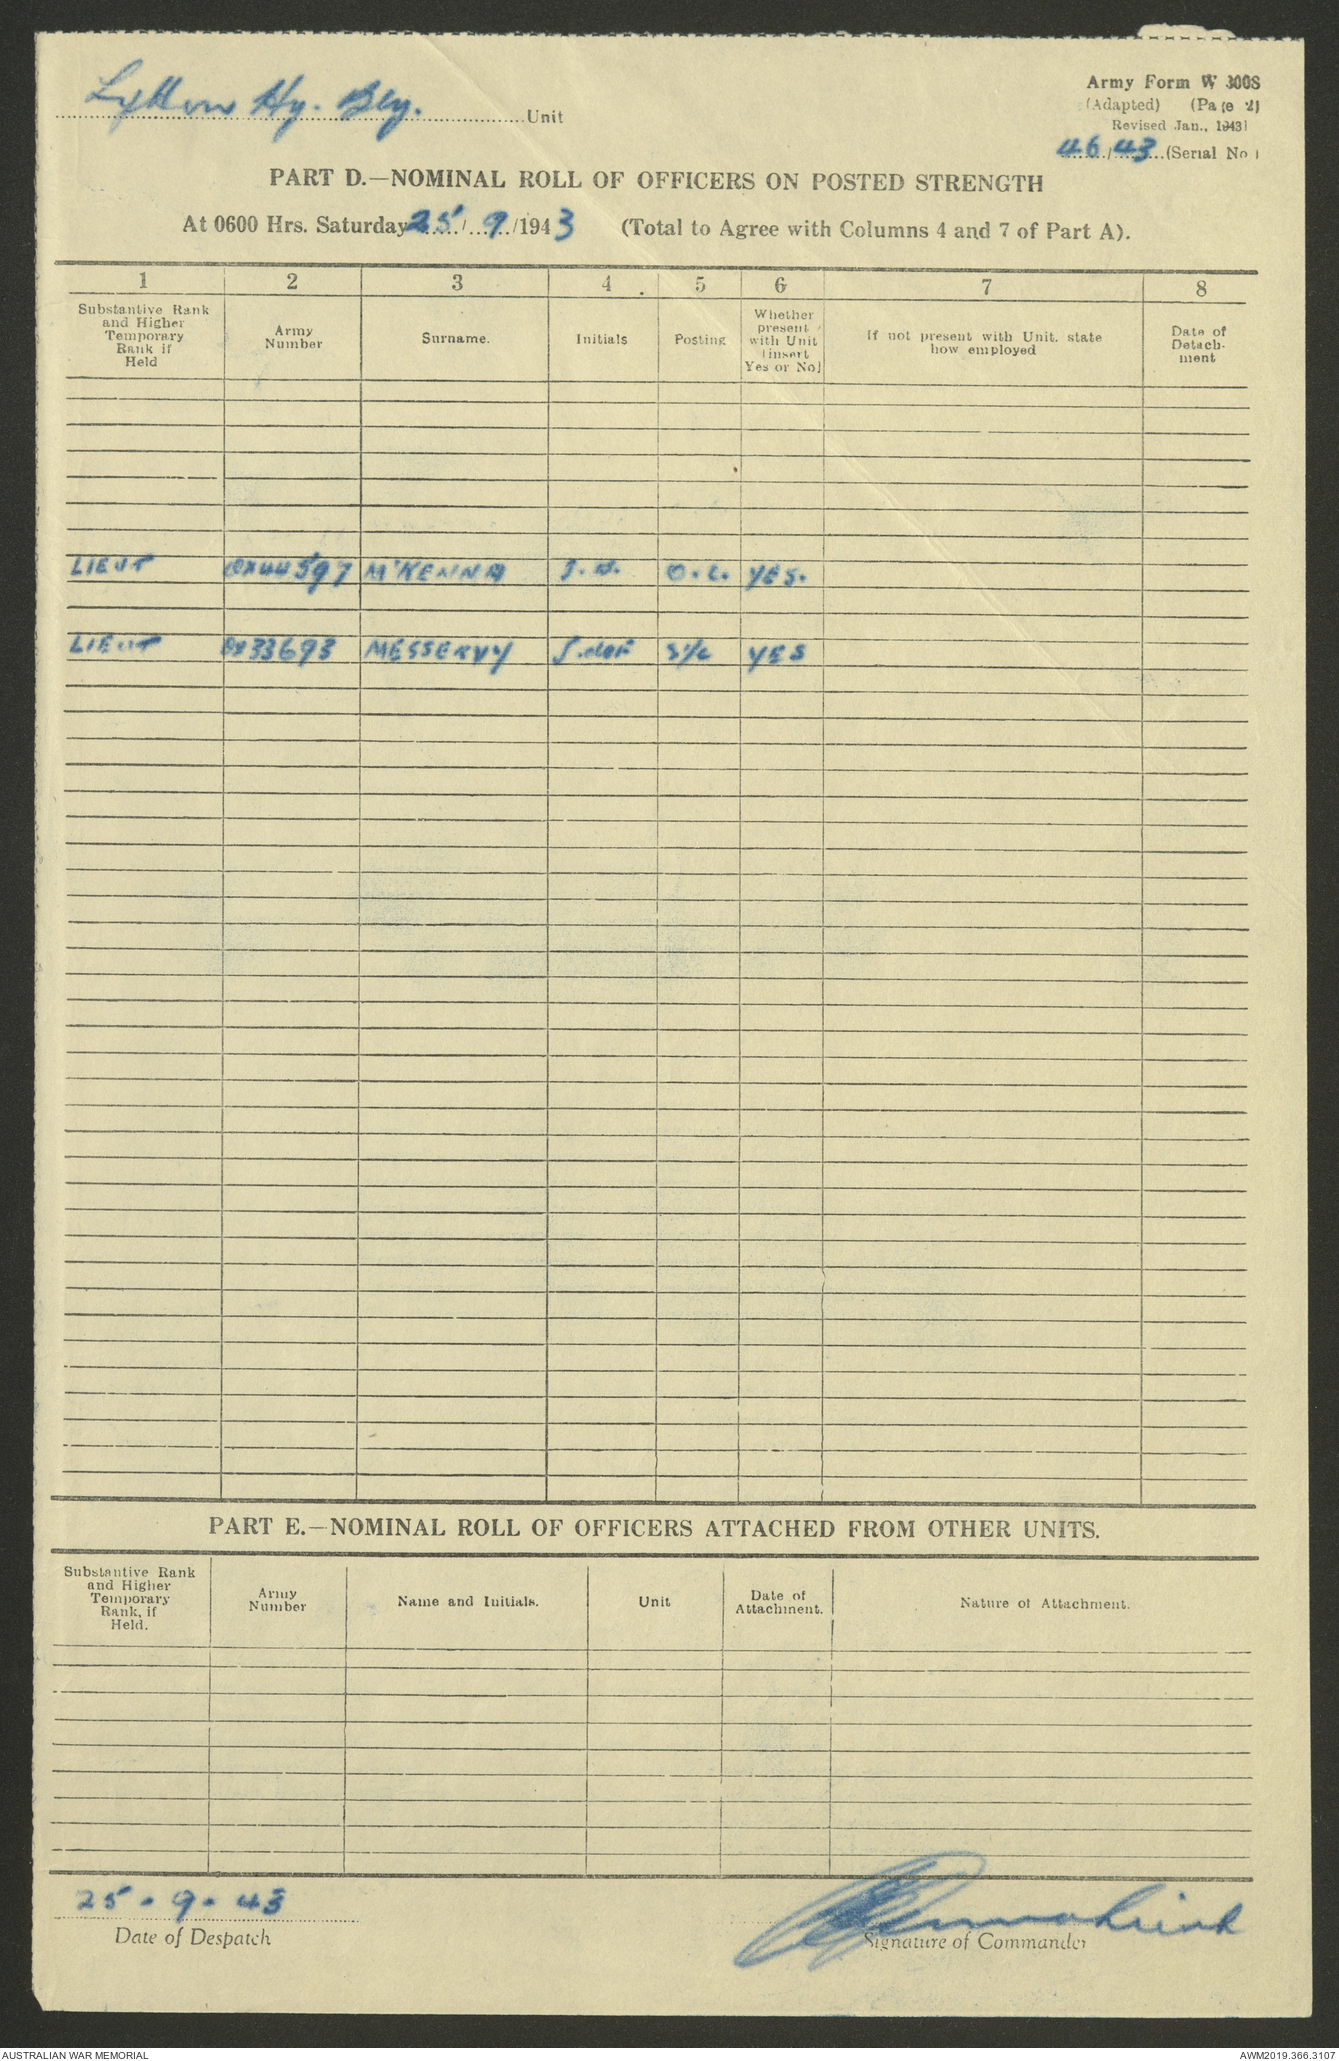 Lytton Hy. Bty. Unit
Army Form W 3008
(Adapted) (Page 2)
Revised Jan., 1943)
46/43 (Serial No)
PART D.—NOMINAL ROLL OF OFFICERS ON POSTED STRENGTH
At 0600 Hrs. Saturday 25/9/1943 (Total to Agree with Columns 4 and 7 of Part A).
1 2 3 4 5 6 7 8
Substantive Rank and Higher Temporary Rank if Held
Army Number
Surname.
Initials
Posting
Whether present with Unit (insert Yes or No)
If not present with Unit. state how employed
Date of Detachment
LIEUT QX44597 McKENNA J.N. O.C. YES.
LIEUT QX33693 MESSERVY S/C YES
PART E.—NOMINAL ROLL OF OFFICERS ATTACHED FROM OTHER UNITS.
Substantive Rank and Higher Temporary Rank, if Held.
Army Number
Name and Initials.
Unit
Date of Attachment.
Nature of Attachment.
25-9-43
Date of Despatch
Signature of Commander
AUSTRALIAN WAR MEMORIAL
AWM2019.366.3107